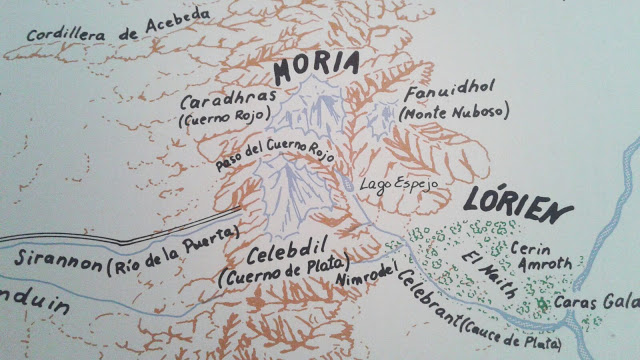 Cordillera de Acebeda
MORIA
Caradhras
(Cuerno Rojo)
Fanuidhol
(Monte Nuboso)
Paso del Cuerno Rojo
Lago Espejo
LÓRIEN
Sirannon (Río de la Puerta)
Celebdil
(Cuerno de Plata)
Nimrodel
El Naith
Cerin
Amroth
Caras Gala
Celebrant (Cauce de Plata)
nduin